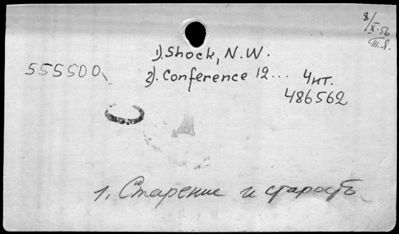 8/X-56
1). Shock, N.W.
555500
2). Conference 12... Чит.
486562
1. Старение и старость